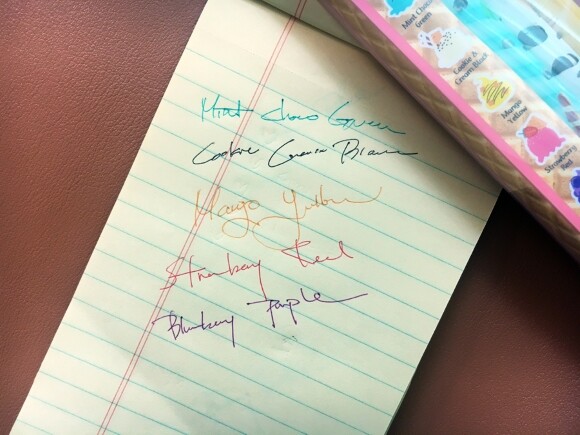 Mint Choco Green
Cookie Cream Black
Mango Yellow
Strawberry Red
Blueberry Purple
Mint Choco
Green
Cookie &
Cream Black
Mango
Yellow
Strawberry
Red